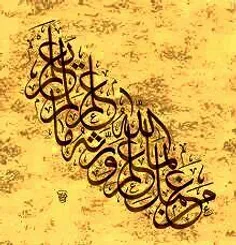 من عمل بما علم ورثه الله علم ما لم يعلم